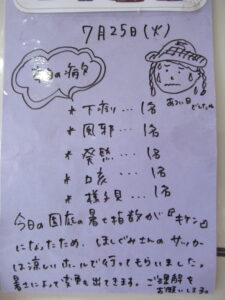 7月25日(火)
今日の病気
あついでしゅね
* 下痢り…1名
* 風邪…1名
* 発熱…1名
* 口炎…1名
* 様子見…1名
今日の園庭の暑さ指数が『キケン』
になったため、ほしぐみさんのサッカー
は涼しいホールで行ってもらいました。
暑さによって変更も出てきます。ご理解を
お願いします。